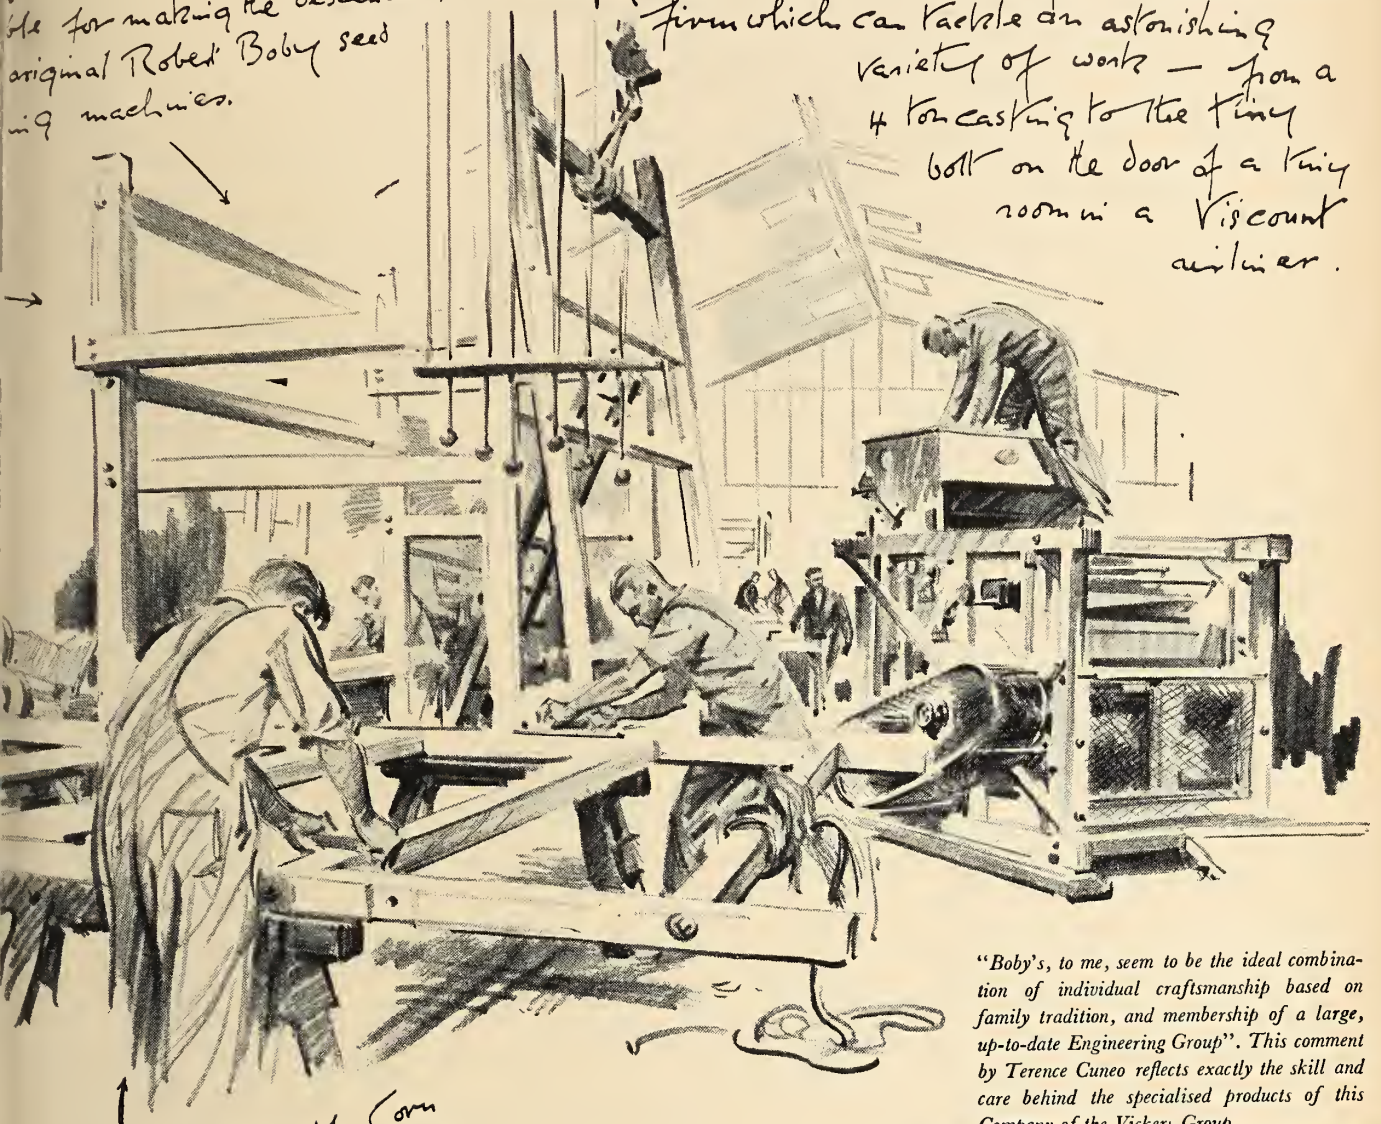 for making the
original Robert Boby seed
machines.
firm which can tackle an astonishing
variety of work — from a
4 ton casting to the tiny
bolt on the door of a tiny
room in a Viscount
airliner.
Corn
"Boby's, to me, seem to be the ideal combina-
tion of individual craftsmanship based on
family tradition, and membership of a large,
up-to-date Engineering Group". This comment
by Terence Cuneo reflects exactly the skill and
care behind the specialised products of this
Company of the Vickers Group.